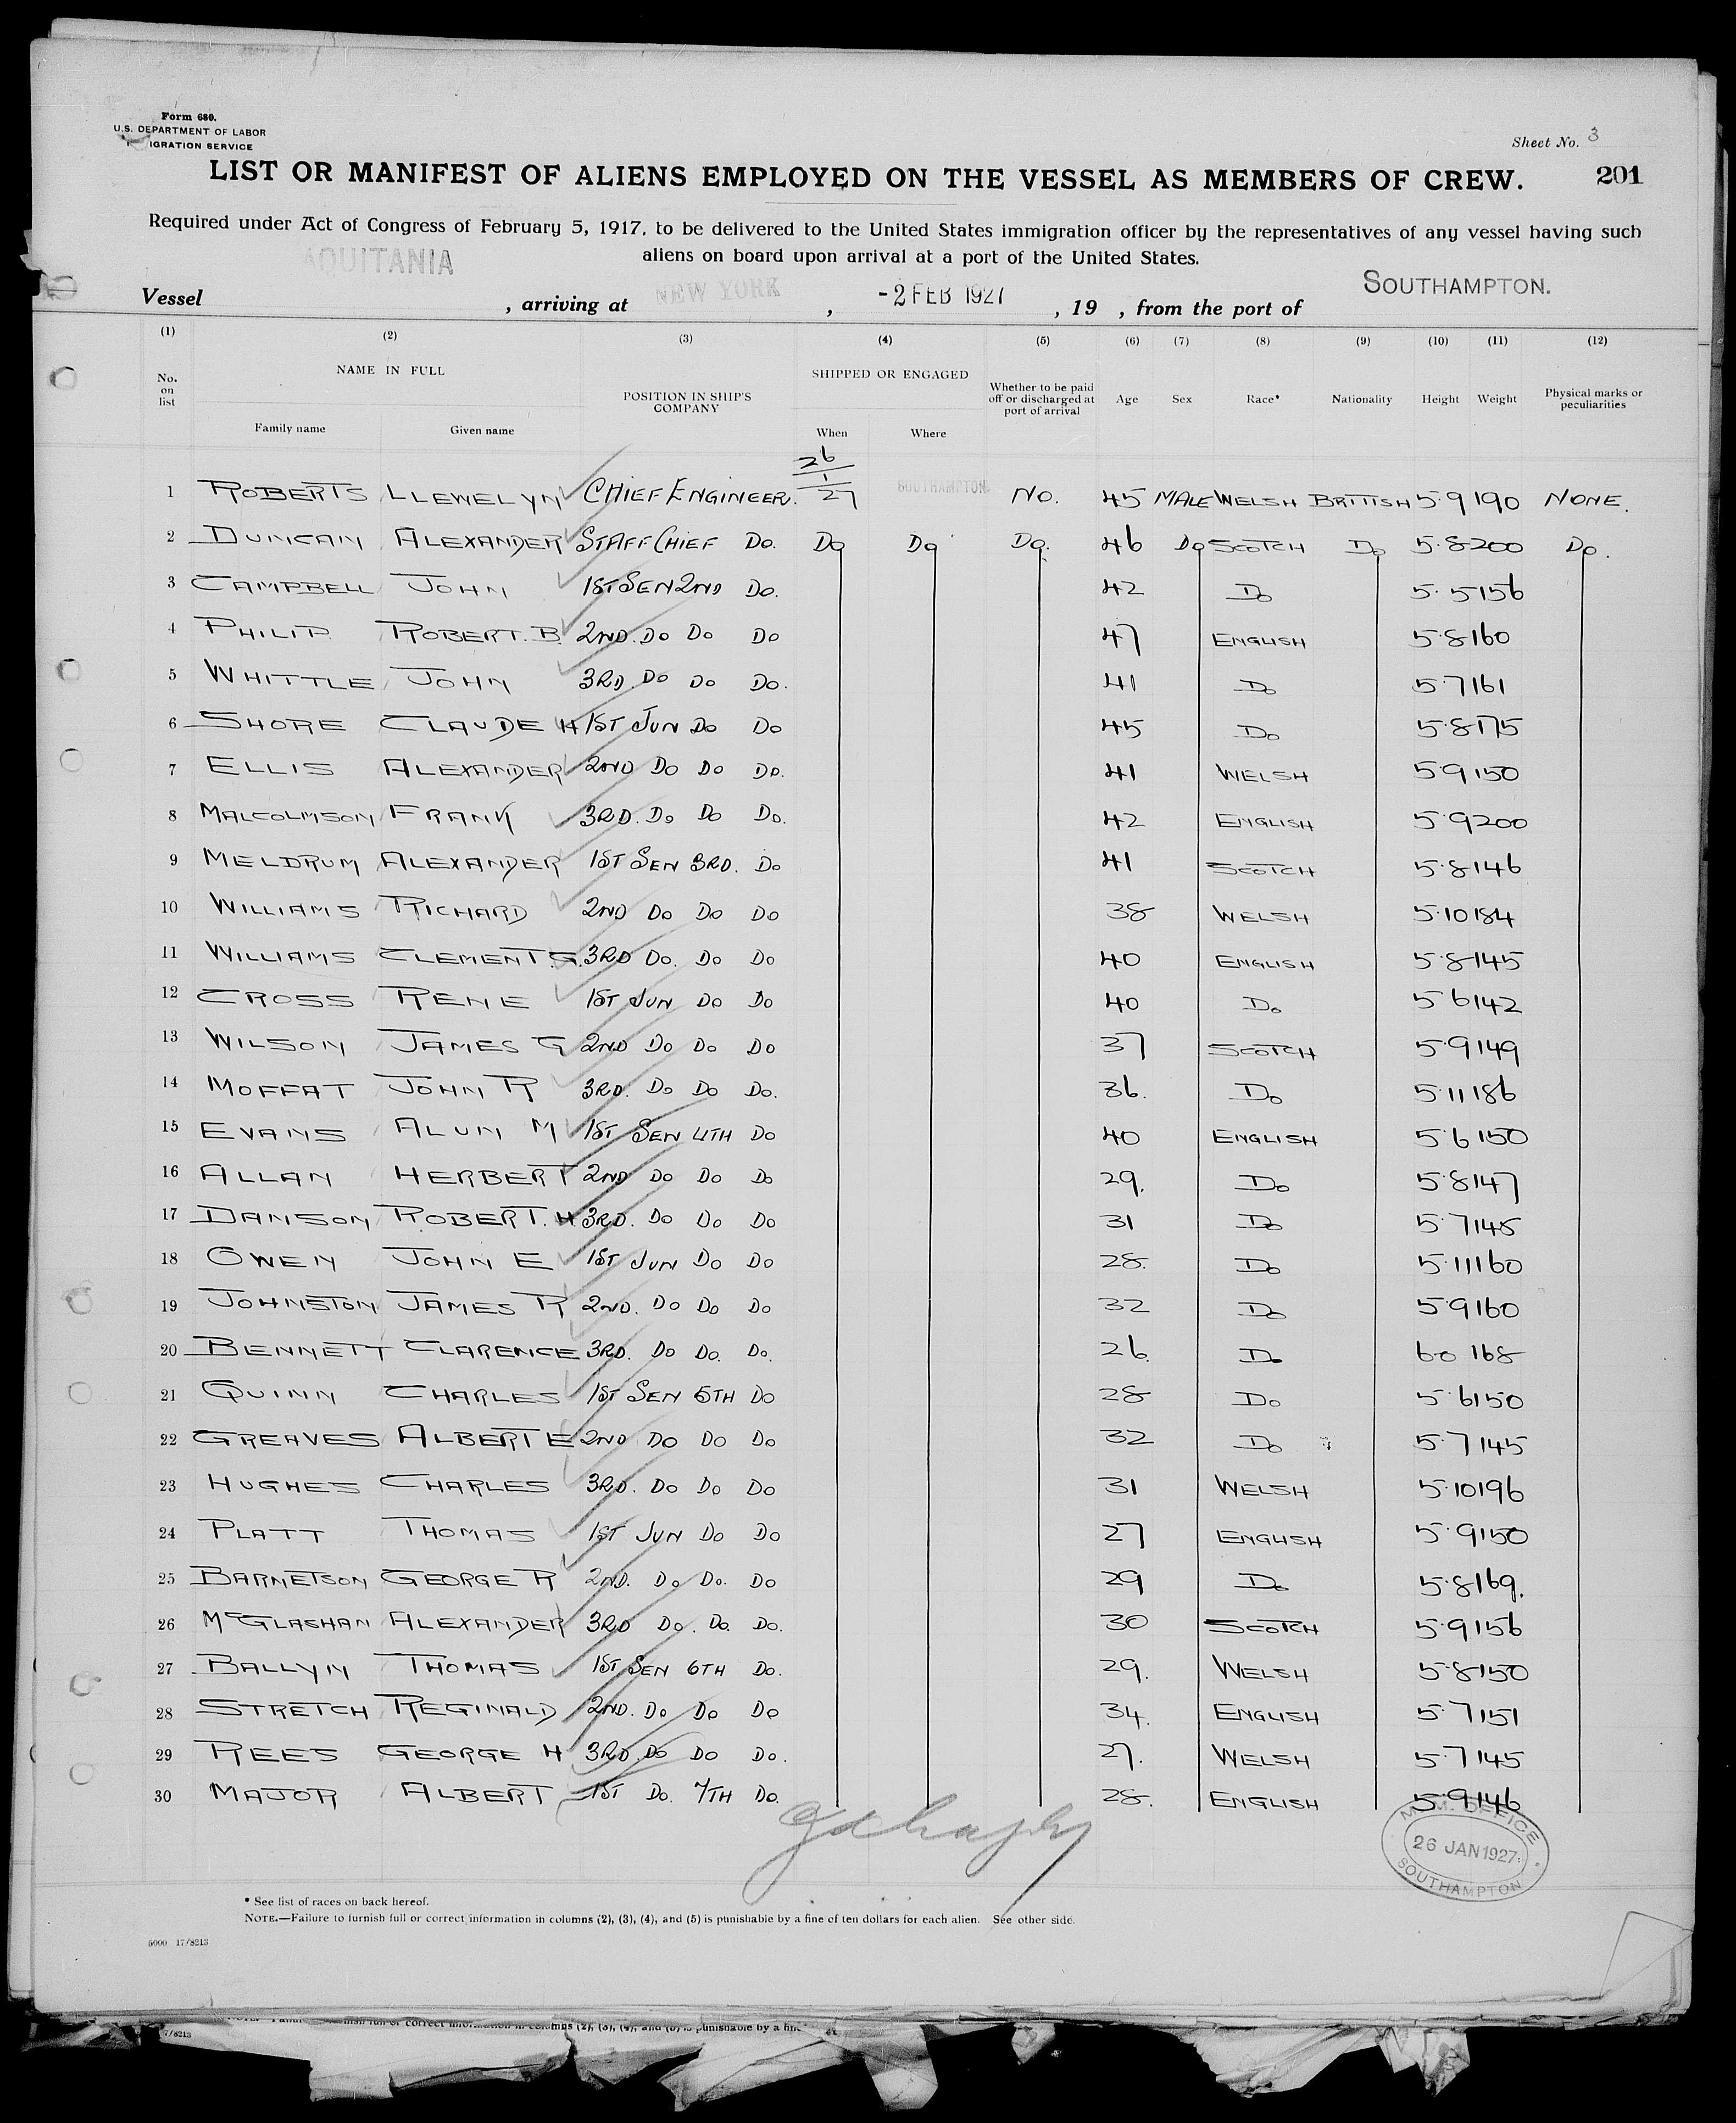 Form 680.
U.S. DEPARTMENT OF LABOR
IGRATION SERVICE
Sheet No. 3
LIST OR MANIFEST OF ALIENS EMPLOYED ON THE VESSEL AS MEMBERS OF CREW.
201
Required under Act of Congress of February 5, 1917, to be delivered to the United States immigration officer by the representatives of any vessel having such
aliens on board upon arrival at a port of the United States.
Vessel AQUITANIA, arriving at NEW YORK, -2 FEB 1927, 19 , from the port of SOUTHAMPTON.
(1) (2) (3) (4) (5) (6) (7) (8) (9) (10) (11) (12)
No. on list NAME IN FULL Family name Given name POSITION IN SHIP'S COMPANY SHIPPED OR ENGAGED When Where Whether to be paid off or discharged at port of arrival Age Sex Race* Nationality Height Weight Physical marks or peculiarities
1 ROBERTS LLEWELYN CHIEF ENGINEER. 26/1/27 SOUTHAMPTON. NO. 45 MALE WELSH BRITISH 5.9 190 NONE.
2 DUNCAN ALEXANDER STAFF CHIEF DO. DO DO DO. 46 DO SCOTCH DO 5.8 200 DO.
3 CAMPBELL JOHN 1ST SEN 2ND DO. 42 DO 5.5 156
4 PHILIP ROBERT. B. 2ND. DO DO DO 47 ENGLISH 5.8 160
5 WHITTLE JOHN 3RD. DO DO DO. 41 DO 5.7 161
6 SHORE CLAUDE H 1ST JUN DO DO 45 DO 5.8 175
7 ELLIS ALEXANDER 2ND DO DO DO. 41 WELSH 5.9 150
8 MALCOLMSON FRANK 3RD. DO DO DO. 42 ENGLISH 5.9 200
9 MELDRUM ALEXANDER 1ST SEN 3RD. DO 41 SCOTCH 5.8 146
10 WILLIAMS RICHARD 2ND DO DO DO 38 WELSH 5.10 184
11 WILLIAMS CLEMENT. G. 3RD DO. DO DO 40 ENGLISH 5.8 145
12 CROSS RENE 1ST JUN DO DO 40 DO 5.6 142
13 WILSON JAMES G 2ND DO DO DO 37 SCOTCH 5.9 149
14 MOFFAT JOHN R 3RD. DO DO DO. 36. DO 5.11 186
15 EVANS ALUN M 1ST SEN 4TH DO 40 ENGLISH 5.6 150
16 ALLAN HERBERT 2ND DO DO DO 29. DO 5.8 147
17 DAMSON ROBERT. H 3RD. DO DO DO 31 DO 5.7 145
18 OWEN JOHN E 1ST JUN DO DO 28. DO 5.11 160
19 JOHNSTON JAMES R 2ND. DO DO DO 32 DO 5.9 160
20 BENNETT CLARENCE 3RD. DO DO. DO. 26. DO 6.0 168
21 QUINN CHARLES 1ST SEN 5TH DO 28 DO 5.6 150
22 GREAVES ALBERT E 2ND DO DO DO 32 DO 5.7 145
23 HUGHES CHARLES 3RD. DO DO DO 31 WELSH 5.10 196
24 PLATT THOMAS 1ST JUN DO DO 27 ENGLISH 5.9 150
25 BARNETSON GEORGE R 2ND. DO DO. DO 29 DO 5.8 169.
26 McGLASHAN ALEXANDER 3RD DO. DO. DO. 30 SCOTCH 5.9 156
27 BALLYN THOMAS 1ST SEN 6TH DO. 29. WELSH 5.8 150
28 STRETCH REGINALD 2ND. DO DO DO 34. ENGLISH 5.7 151
29 REES GEORGE H 3RD. DO DO DO. 27. WELSH 5.7 145
30 MAJOR ALBERT 1ST DO. 7TH DO. 28. ENGLISH 5.9 146
M.M. OFFICE
26 JAN 1927
SOUTHAMPTON
* See list of races on back hereof.
NOTE.—Failure to furnish full or correct information in columns (2), (3), (4), and (5) is punishable by a fine of ten dollars for each alien. See other side.
5000 17/8213
7/8213